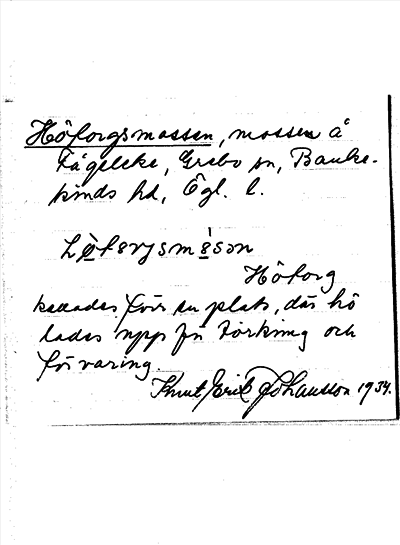 Höforgsmossen, mossen å
Fågeleke, Grebo sn, Banke-
kinds hd, Ögl. l.
Höforg
kallades förr en plats, där hö
lades upp för torkning och
förvaring.
Knut Erik Johansson 1934.